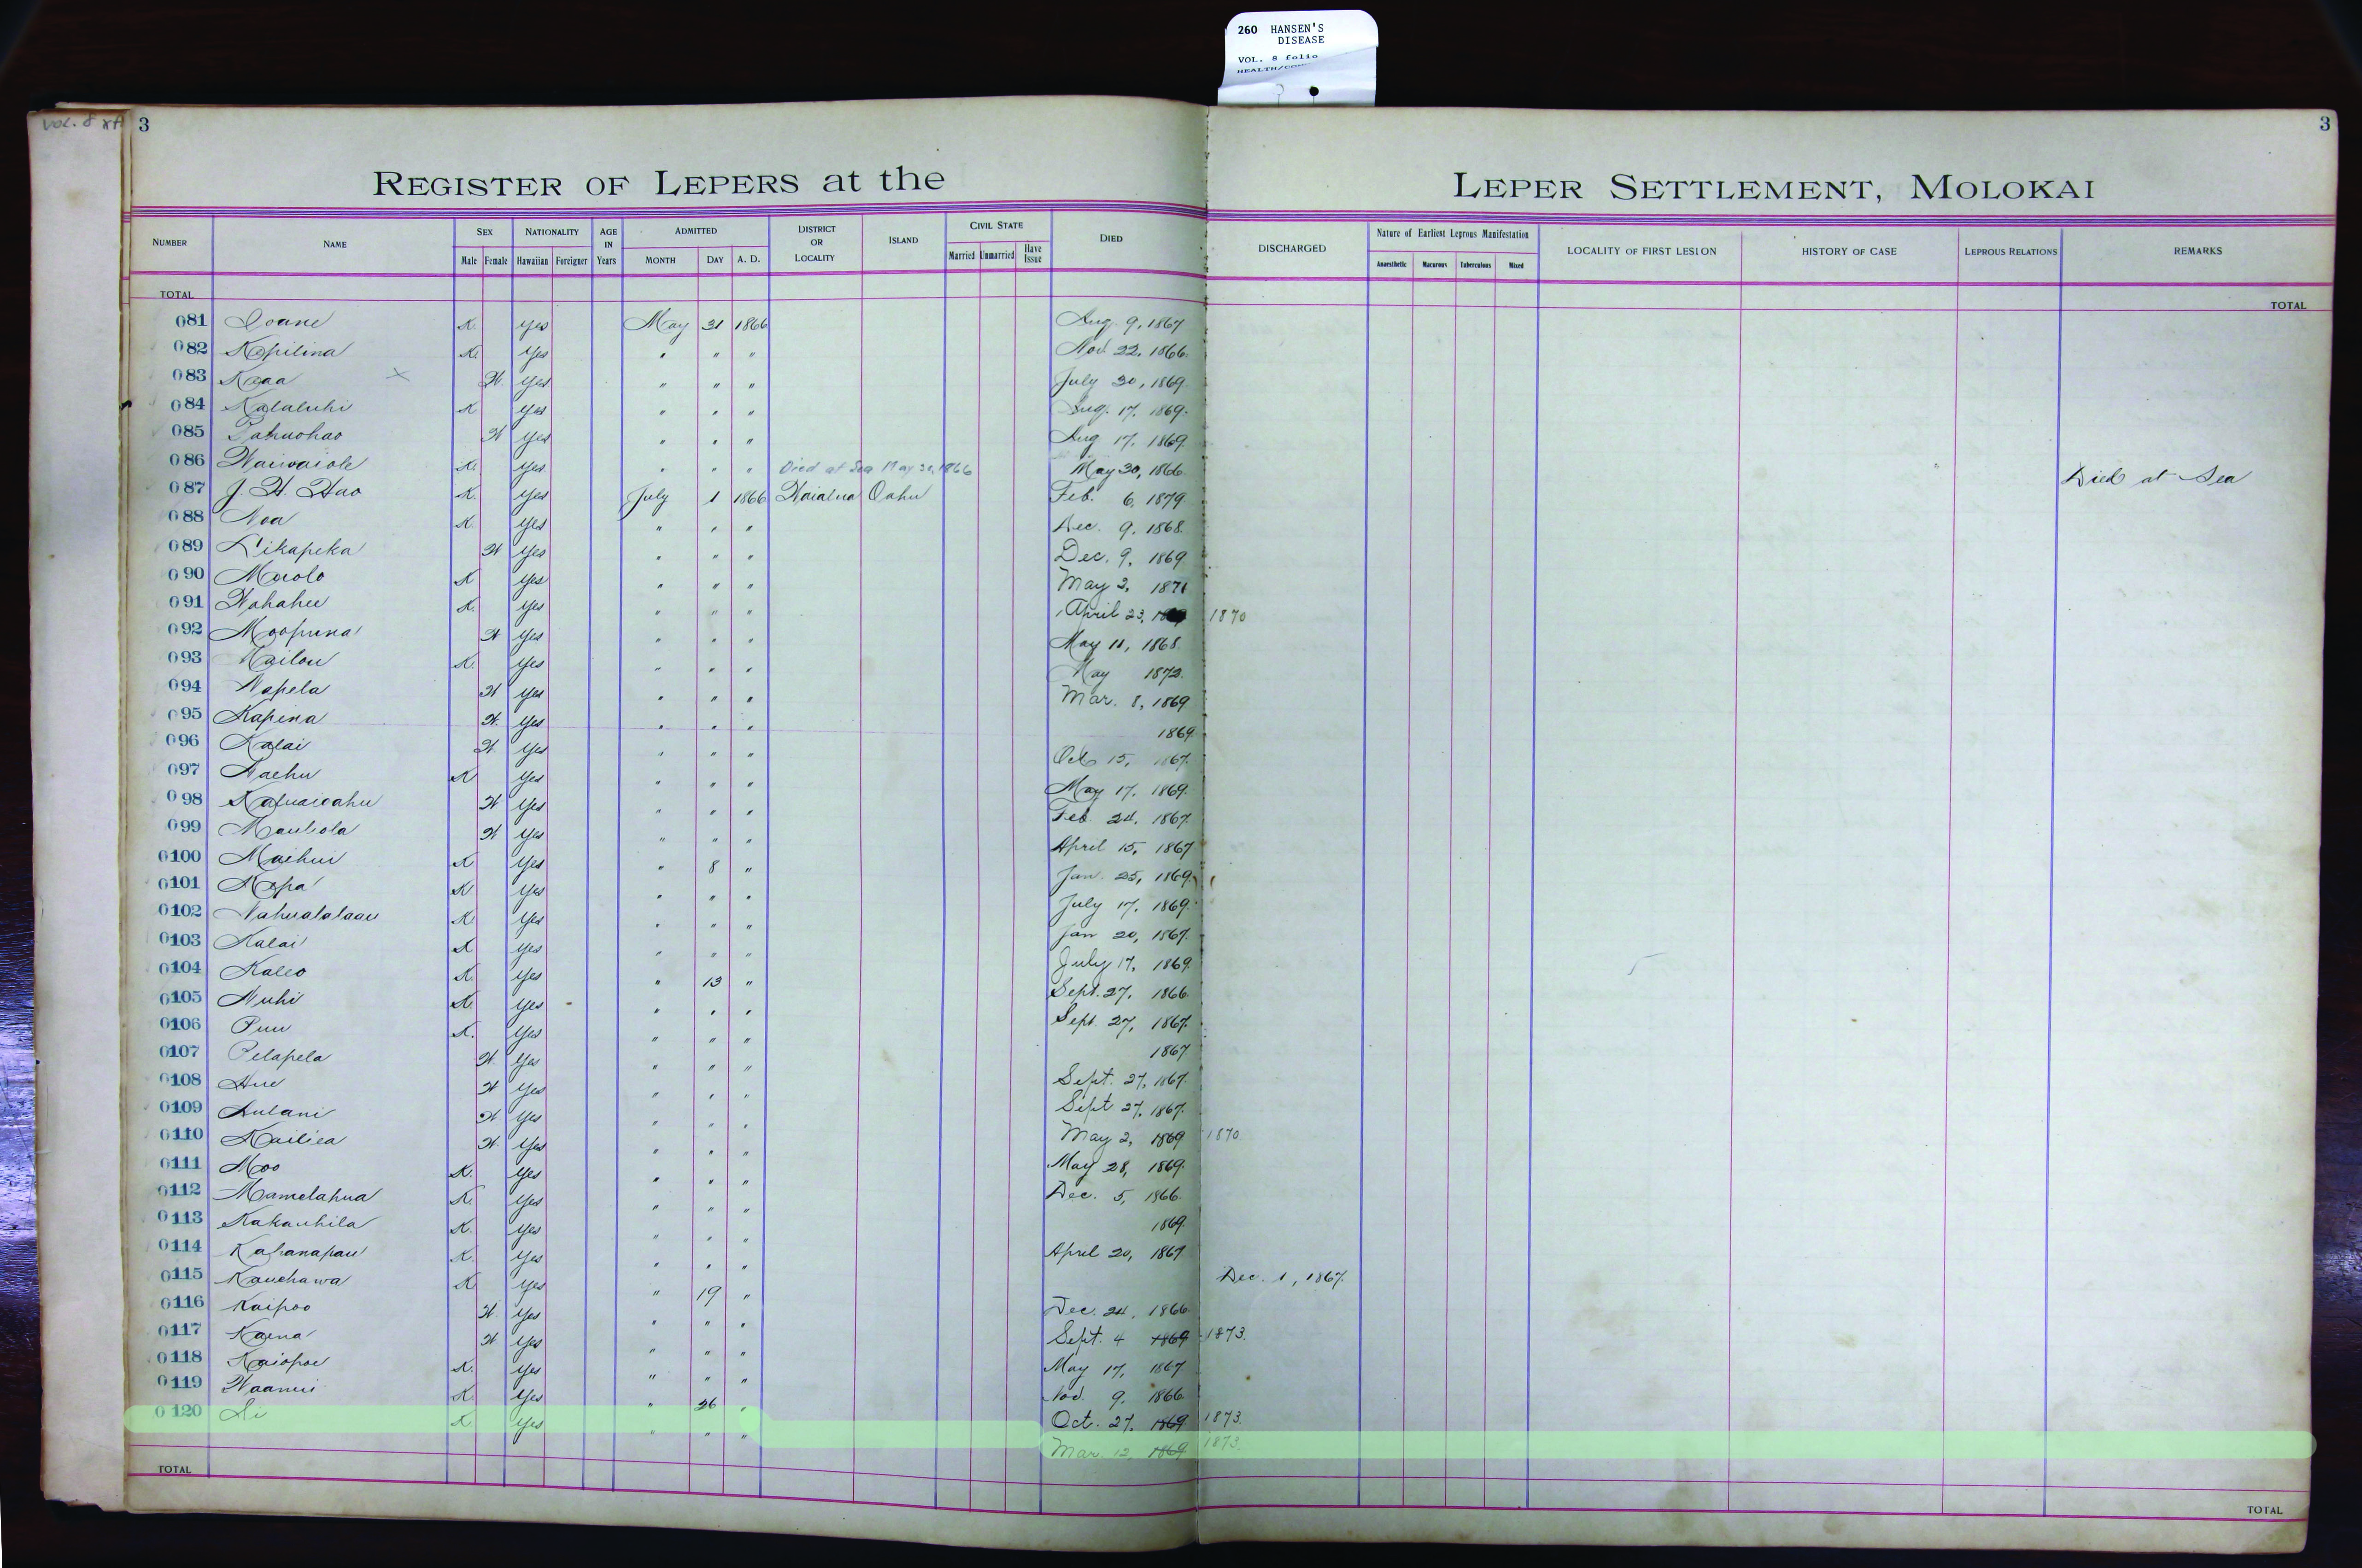 260 HANSEN'S
DISEASE
VOL. 8 folio
VOL. 8
3
3
REGISTER OF LEPERS at the LEPER SETTLEMENT, MOLOKAI
NUMBER NAME SEX Male Female NATIONALITY Hawaiian Foreigner AGE IN Years ADMITTED MONTH DAY A. D. DISTRICT OR LOCALITY ISLAND CIVIL STATE Married Unmarried Have Issue DIED DISCHARGED Nature of Earliest Leprous Manifestation Anaesthetic Macurous Tuberculous Mixed LOCALITY OF FIRST LESION HISTORY OF CASE LEPROUS RELATIONS REMARKS
TOTAL TOTAL
081 Ioane K. Yes May 31 1866 Aug. 9, 1867
082 Kopilina K. Yes " " " Nov. 22, 1866.
083 Kaaa x W. Yes " " " July 30, 1869.
084 Kalaluhi K Yes " " " Aug. 17, 1869.
085 Pahuohao W Yes " " " Aug 17, 1869.
086 Waiwaiole K. Yes " " " Died at Sea May 30, 1866 May 30, 1866. Died at Sea
087 J. H. Hao K. Yes July 1 1866 Waialua Oahu Feb. 6, 1879
088 Noa K. Yes " " " Dec. 9, 1868.
089 Likapeka W Yes " " " Dec. 9, 1869
090 Maolo K Yes " " " May 2, 1871
091 Wahahee K. Yes " " " April 23, 1870
092 Moopuna W Yes " " " May 11, 1868.
093 Kailou K. Yes " " " May 1872.
094 Napela W Yes " " " Mar. 8, 1869
095 Kapina W. Yes " " " 1869.
096 Kalai W Yes " " " Oct 15, 1867.
097 Naehu K Yes " " " May 17, 1869.
098 Kafuaioahu W Yes " " " Feb. 24, 1867.
099 Mauliola W Yes " " " April 15, 1867
0100 Maihui K Yes " 8 " Jan. 25, 1869.
0101 Mopa K Yes " " " July 17, 1869.
0102 Nahualalaau K. Yes " " " Jan 20, 1867.
0103 Kalai K Yes " " " July 17, 1869.
0104 Kaleo K. Yes " 13 " Sept. 27, 1866.
0105 Nuhi K. Yes " " " Sept. 27, 1867.
0106 Puu K. Yes " " " 1867
0107 Pelapela W Yes " " " Sept. 27, 1867.
0108 Hue W Yes " " " Sept 27, 1867.
0109 Aulani W. Yes " " " May 2, 1869 1870.
0110 Kailiea W. Yes " " " May 28, 1869.
0111 Moo K. Yes " " " Dec. 5, 1866.
0112 Mamelahua K. Yes " " " 1869.
0113 Kakauhila K. Yes " " " April 20, 1867
0114 Kahanapau K. Yes " " " Dec. 1, 1867.
0115 Kauehawa K. Yes " 19 " Dec. 24, 1866.
0116 Kaipoo W. Yes " " " Sept. 4 1869 1873.
0117 Kaena W Yes " " " May 17, 1867
0118 Kaiopoe K. Yes " " " Nov. 9, 1866.
0119 Waanui K. Yes " 26 " Oct. 27, 1869 1873.
0120 K. Yes " " " Mar. 12, 1869 1873.
TOTAL TOTAL